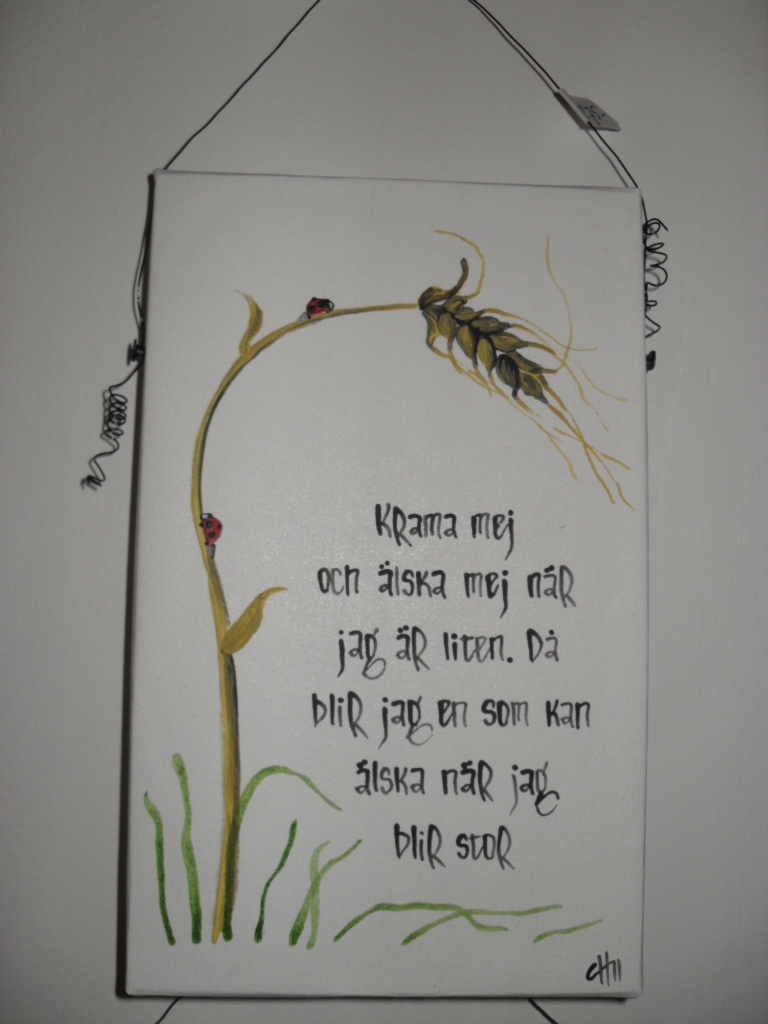 Krama mej
och älska mej när
jag är liten. Då
blir jag en som kan
älska när jag
blir stor
CH11